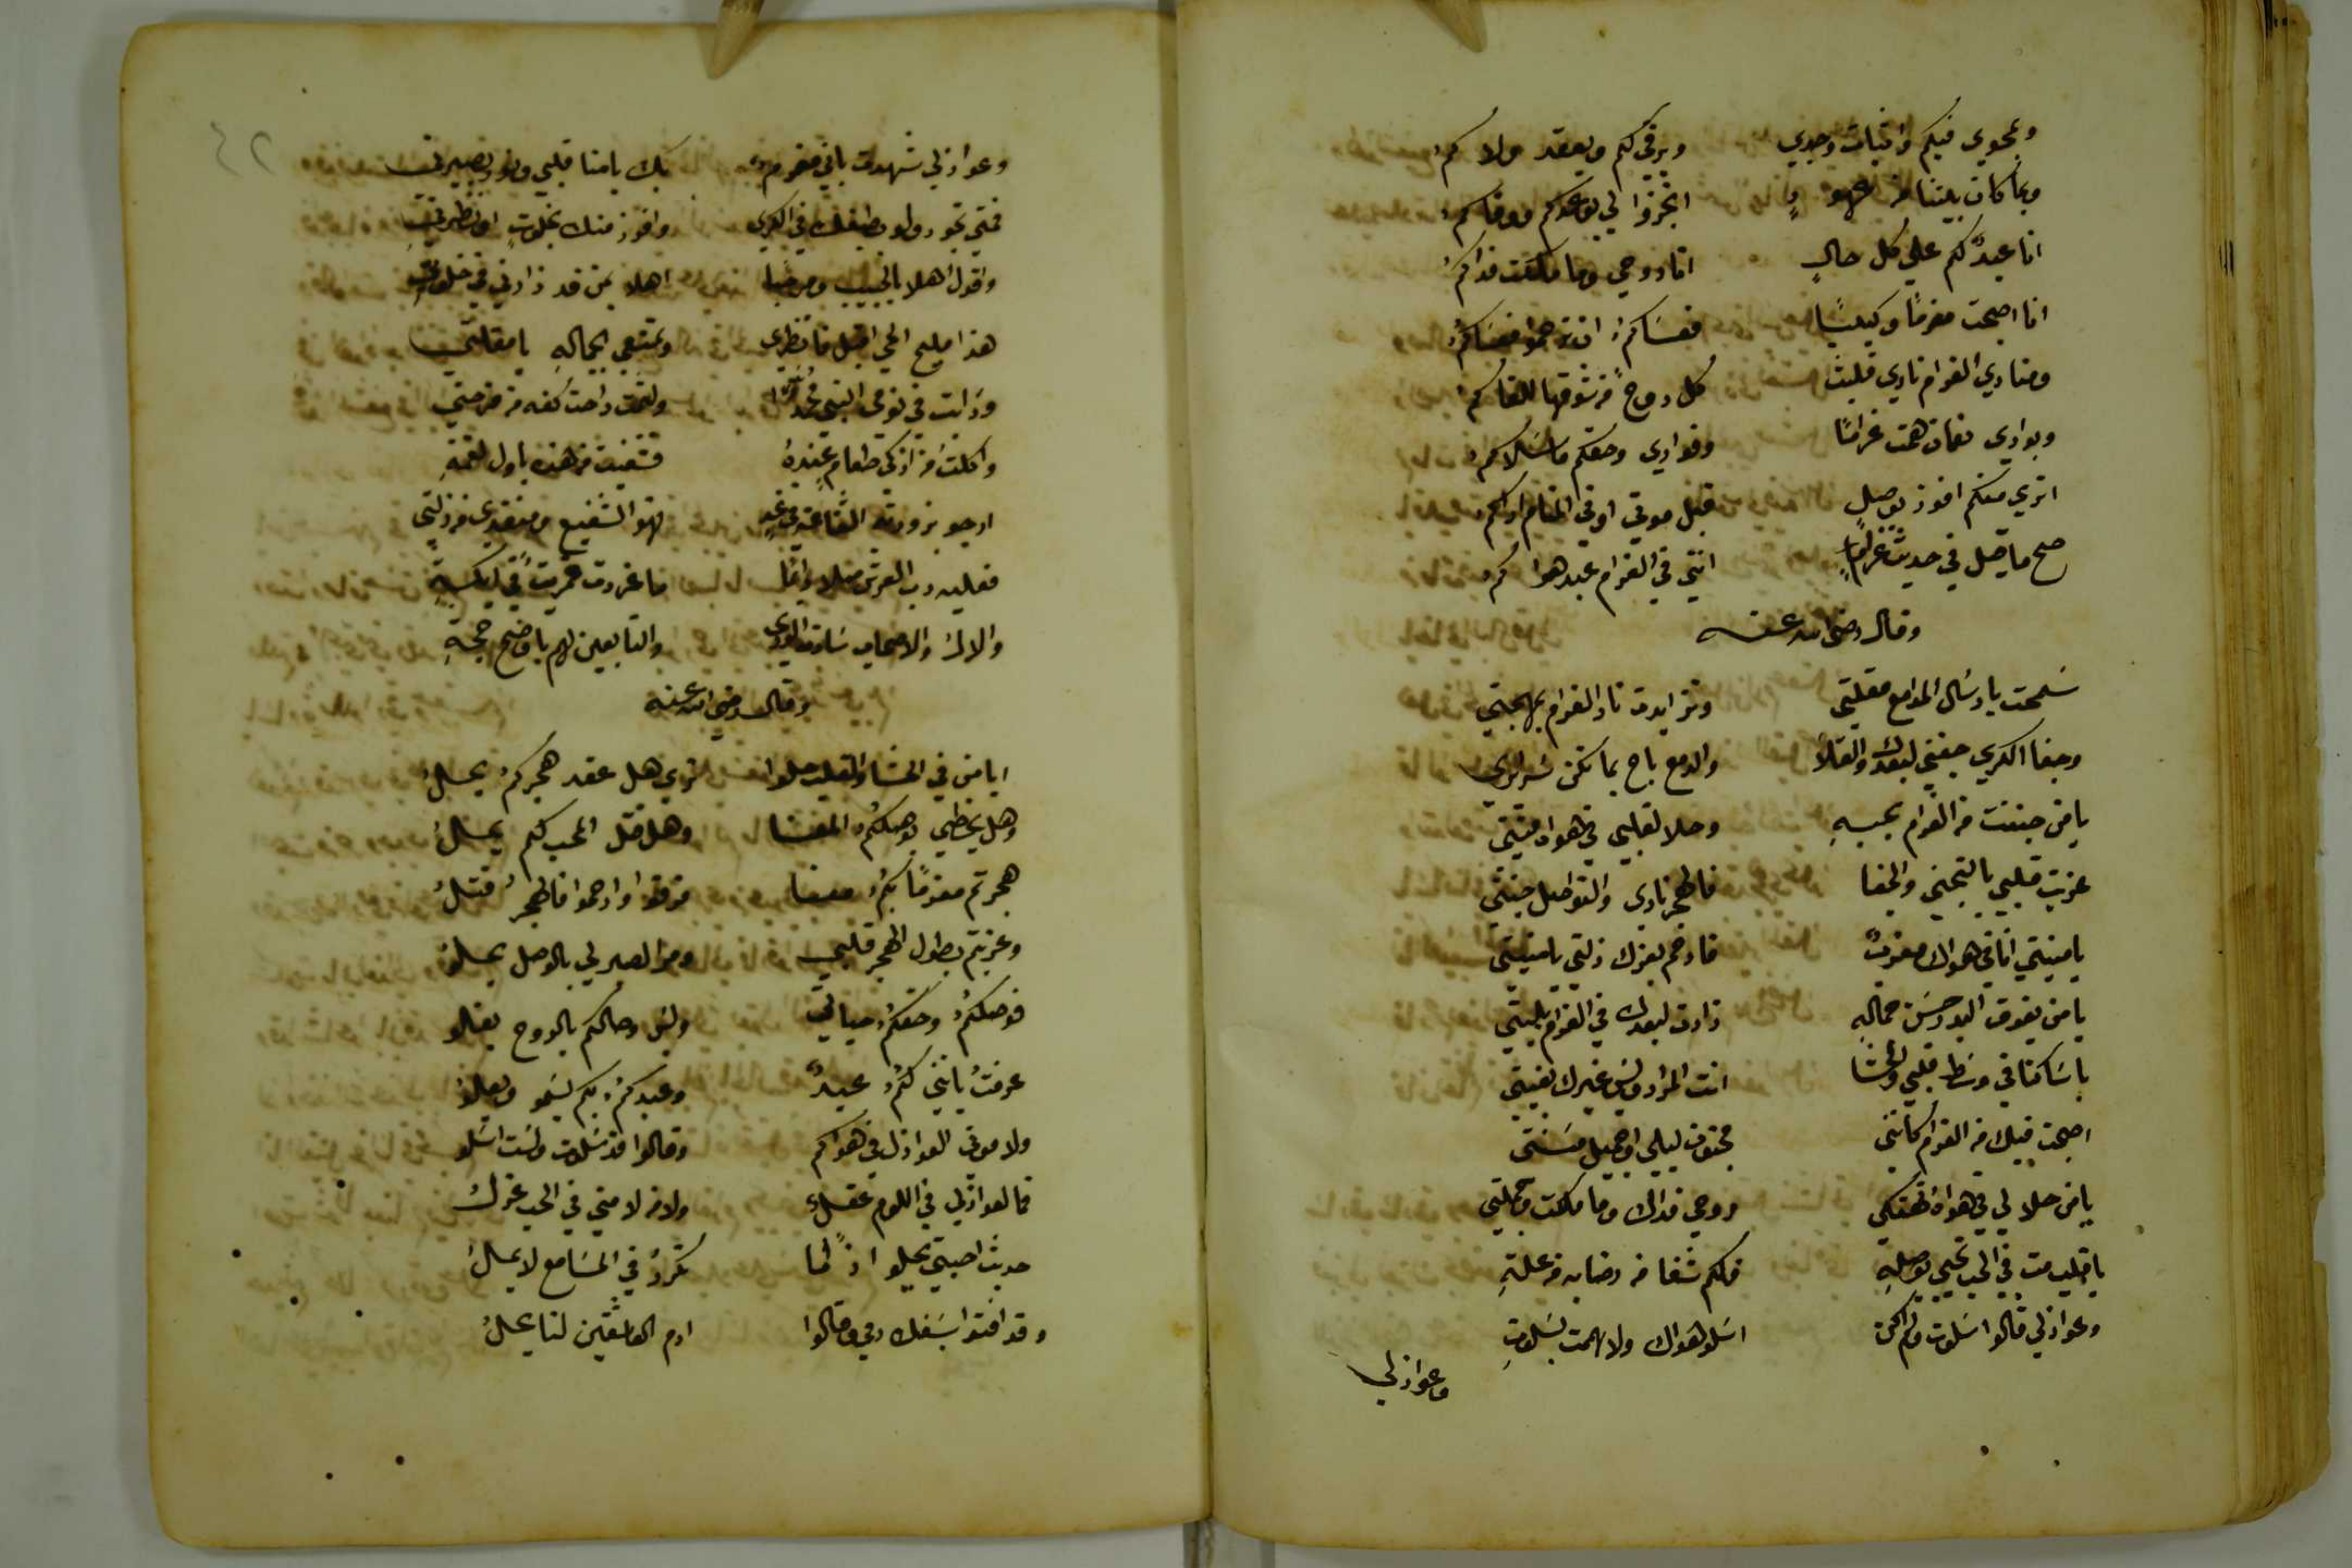 وبحوي فيكم واثبات وجدي وبرقي لكم وبعقد ولاكم
وبما كان بيننا من عهود انجزوا لي بوعدكم ووفاكم
انا عبد لكم على كل حال انا روحي وما ملكت فداكم
انا اصبحت مغرما وكيبا فعساكم ان ترحموا فعساكم
ومنادي الغرام نادى قلبي كل روح من شوقها للقاكم
وبوادي نعمان همت غراما وفوادي وحقكم ما سلاكم
اترى منكم افوز بوصل قبل موتي او في المنام اراكم
صح ما قيل في حديث غرامي انني في الغرام عبد هواكم
وقال رضي الله عنه
سمحت بارسال المدامع مقلتي وتزايدت نار الغرام بمهجتي
وجفا الكرى جفني لبعدك والقلا والدمع باح بما تكن سرايري
يا من جننت من الغرام بحبه وحلا لقلبي في هواه ميتتي
عذبت قلبي بالتجني والجفا فالهجر ناري والتواصل جنتي
يا منيتي انا في هواك مغرم فارحم بعزك ذلتي يا منيتي
يا من يفوق البدر حسن جماله زادت لبعدك في الغرام بليتي
يا ساكنا في وسط قلبي والحشا انت المراد وليس غيرك بغيتي
اصبحت فيك من الغرام كانني مجنون ليلى او جميل بثينتي
يا من حلا لي في هواه تهتكي روحي فداك وما ملكت وجملتي
يا قلب مت في الحب تحيى بوصله فلكم شفا من رضابه من علة
وعواذلي قالوا سلوت ولم اكن اسلو هواك ولا هممت بسلوة
وعواذلي
وعواذلي شهدت باني مغرم بك يا منا قلبي ونور بصيرتي
فمتى تجود ولو بطيفك في الكرى وافوز منك بخلوة او نظرة
واقول اهلا بالحبيب ومرحبا اهلا بمن قد زارني في خلوتي
هذا مليح الحي اقبل فانظري وتمتعي بجماله يا مقلتي
ورايت في نومي النبي محمدا ولثمت راحت كفه من فرحتي
واكلت من ازكى طعام عنده فشفيت من هذه باول لقمة
ارجو بزورته الشفاعة في غد فهو الشفيع ومنقذي من زلتي
فعليه رب العرش صلا دايما ما غردت قمرية في ايكة
والال والاصحاب سادات الورى والتابعين لهم باوضح حجة
وقال رضي الله عنه
ايا من في الحشا والقلب حلوا ترى هل عقد هجركم يحل
وهل يحظى بوصلكم المعنا وهل قتل المحب لكم يحل
هجرتم مغرما بكم معنا فرقوا وارحموا فالهجر قتل
وعذبتم بطول الهجر قلبي ومر الصبر لي بالوصل يحلو
فوصلكم وحقكم حياتي وليس وصالكم بالروح يغلو
عرفت بانني لكم عبيد وعبدكم بكم يسمو ويعلو
ولاموني العواذل في هواكم وقالوا قد سلوت ولست اسلو
فما لعواذلي في اللوم عقل ولا من لامني في الحب عزل
حديث احبتي يحلو اذا ما تكرر في المسامع لا يمل
وقد افتوا بسفك دمي وقالوا ادم العاشقين لنا يحل